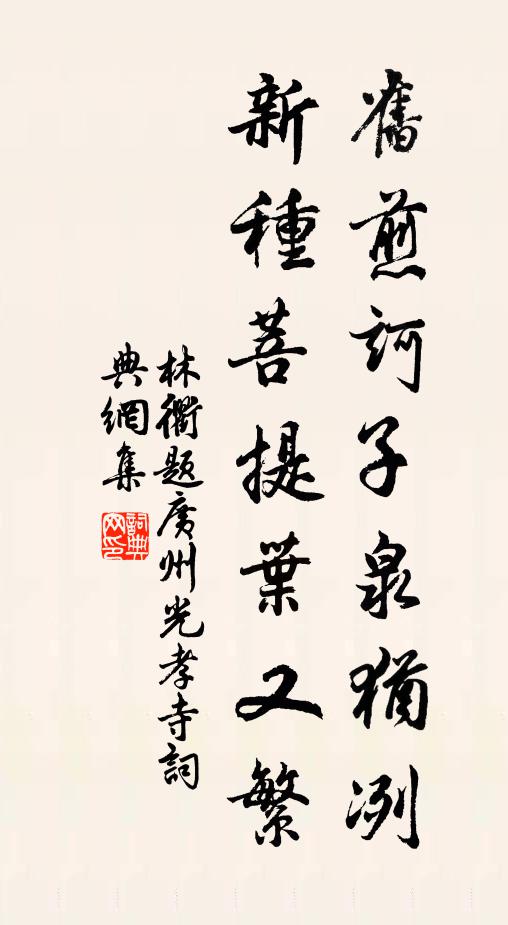 舊煎訶子泉猶冽
新種菩提葉又繁
林衢題廣州光孝寺詞
典網集
詞典網印